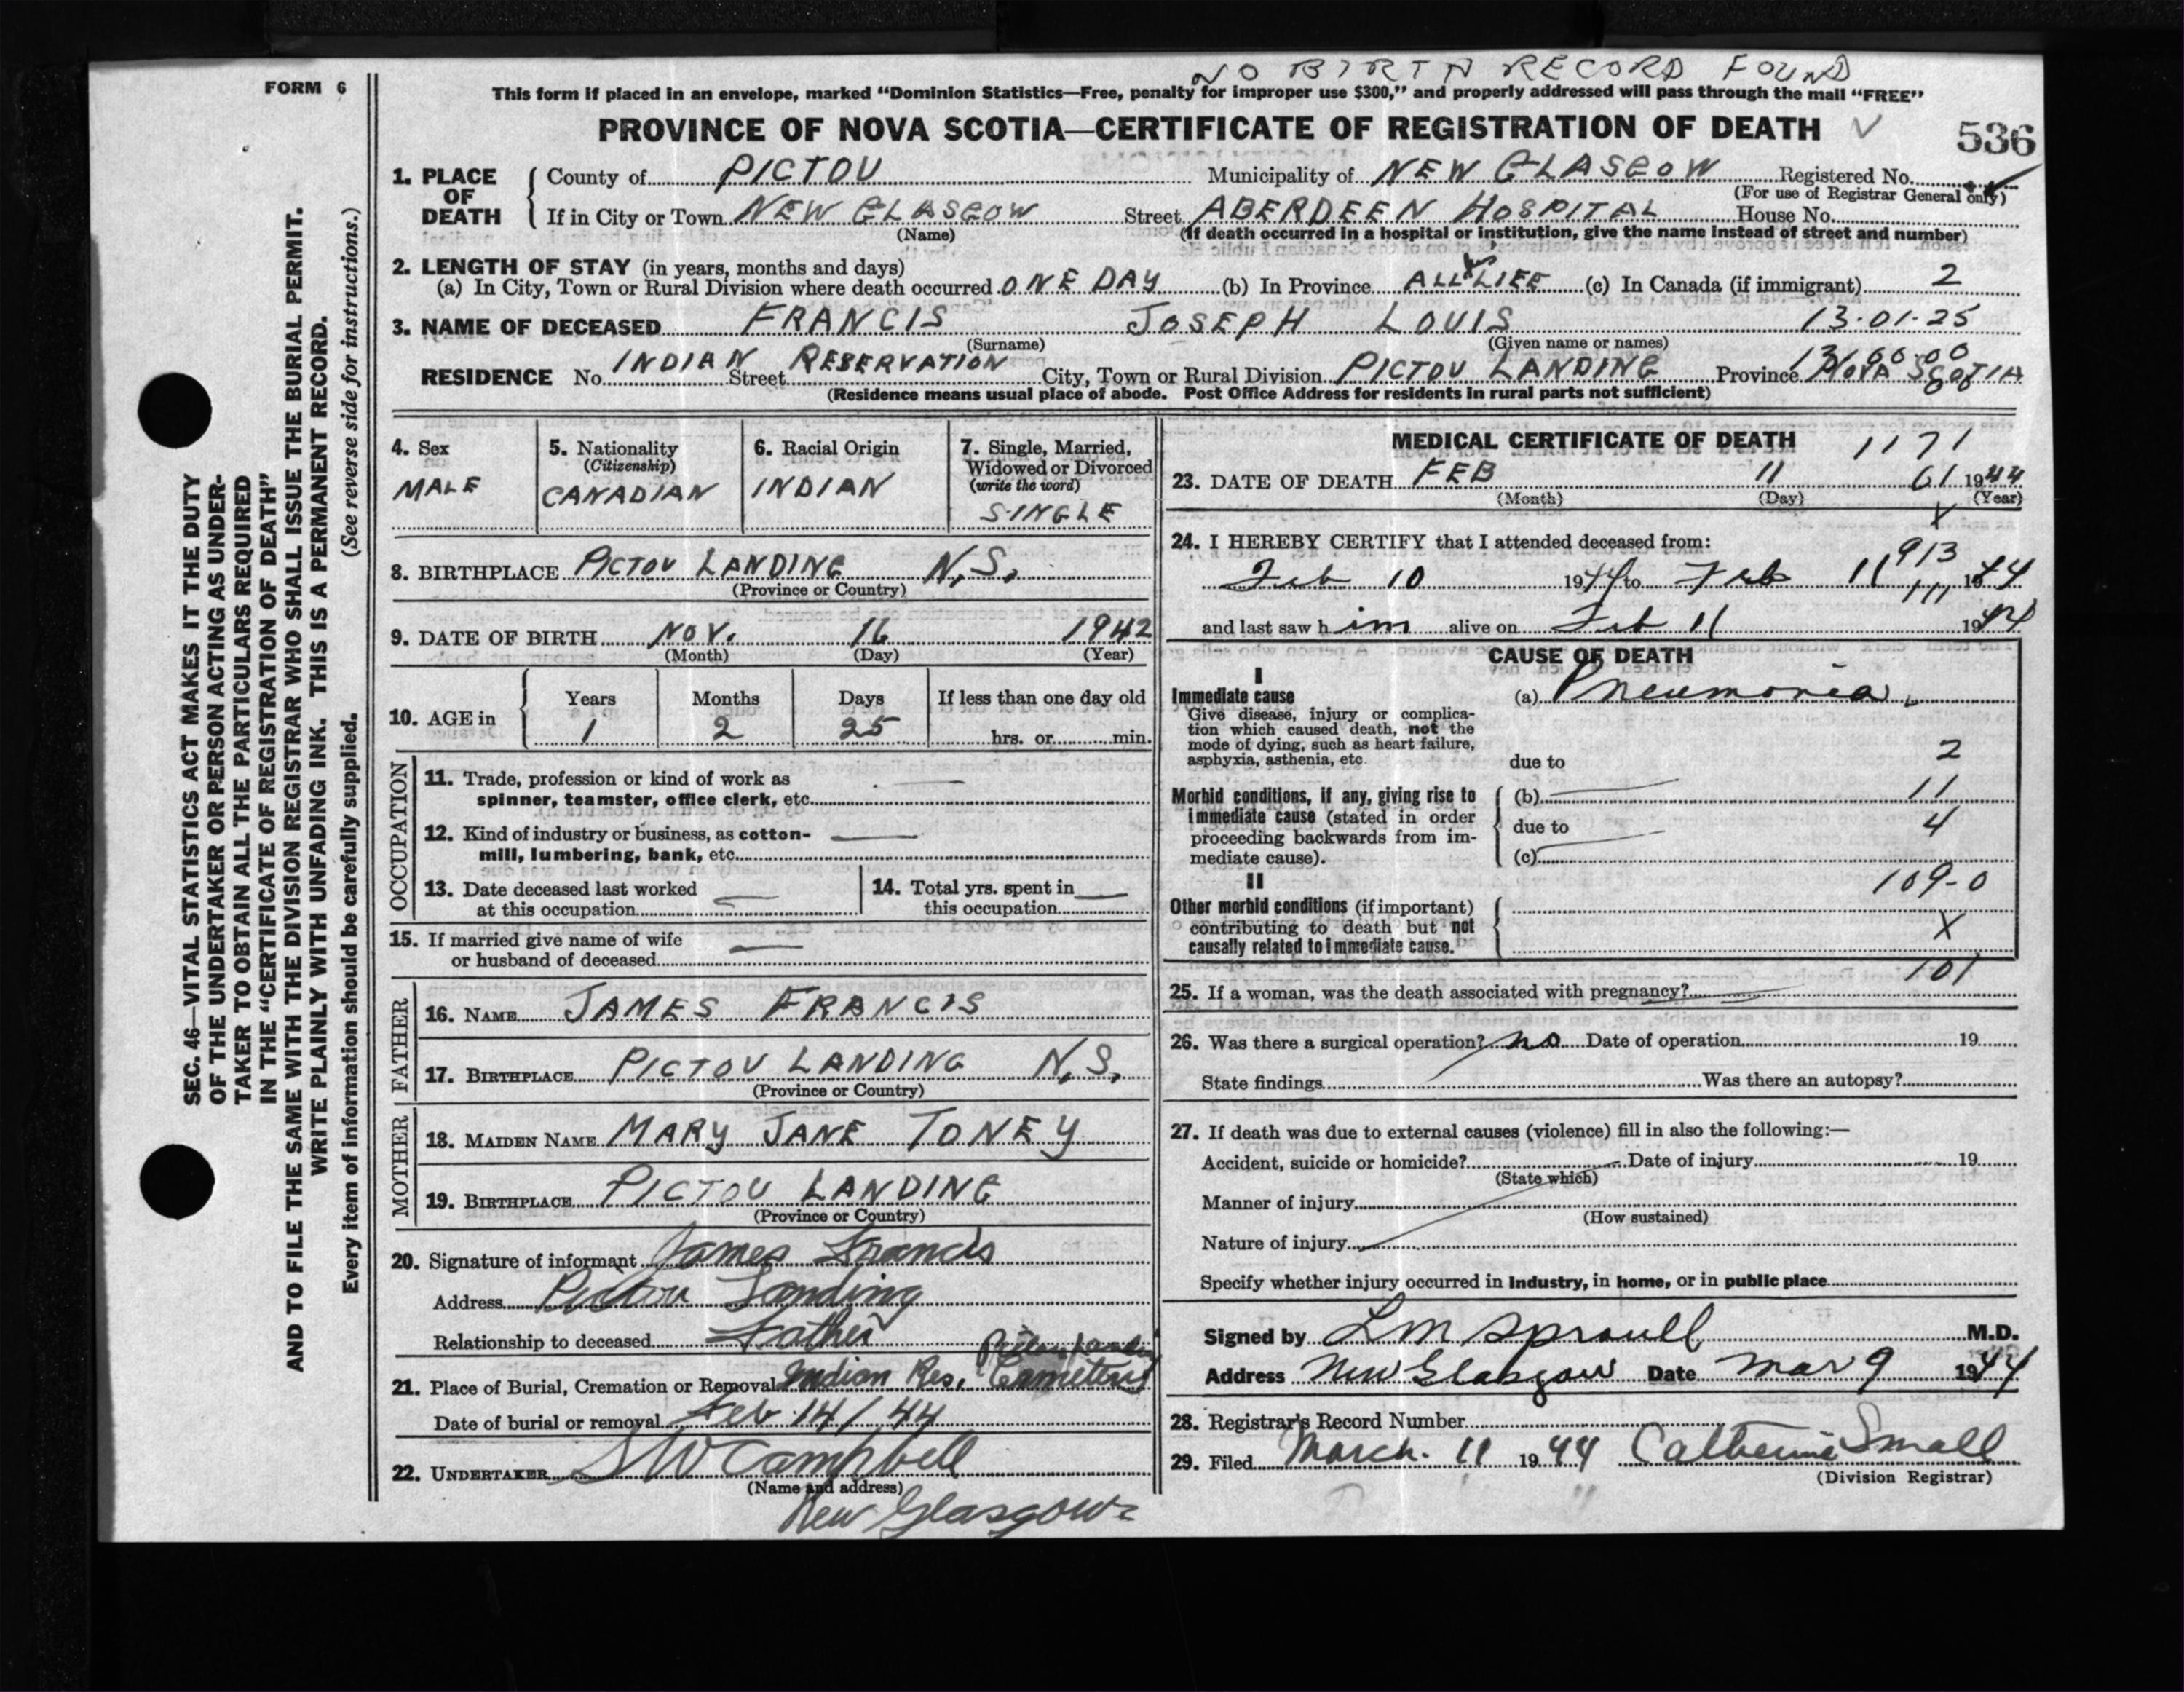 NO BIRTH RECORD FOUND
FORM 6
This form if placed in an envelope, marked “Dominion Statistics—Free, penalty for improper use $300,” and properly addressed will pass through the mail “FREE”
PROVINCE OF NOVA SCOTIA—CERTIFICATE OF REGISTRATION OF DEATH
536
SEC. 46—VITAL STATISTICS ACT MAKES IT THE DUTY
OF THE UNDERTAKER OR PERSON ACTING AS UNDER-
TAKER TO OBTAIN ALL THE PARTICULARS REQUIRED
IN THE “CERTIFICATE OF REGISTRATION OF DEATH”
AND TO FILE THE SAME WITH THE DIVISION REGISTRAR WHO SHALL ISSUE THE BURIAL PERMIT.
WRITE PLAINLY WITH UNFADING INK. THIS IS A PERMANENT RECORD.
Every item of information should be carefully supplied. (See reverse side for instructions.)
1. PLACE OF DEATH
County of PICTOU Municipality of NEW GLASGOW Registered No.
(For use of Registrar General only)
If in City or Town NEW GLASGOW Street ABERDEEN HOSPITAL House No.
(Name) (If death occurred in a hospital or institution, give the name instead of street and number)
2. LENGTH OF STAY (in years, months and days)
(a) In City, Town or Rural Division where death occurred ONE DAY (b) In Province ALL his LIFE (c) In Canada (if immigrant) 2
3. NAME OF DECEASED FRANCIS JOSEPH LOUIS 13-01-25
(Surname) (Given name or names)
RESIDENCE No. INDIAN Street RESERVATION City, Town or Rural Division PICTOU LANDING Province NOVA SCOTIA
(Residence means usual place of abode. Post Office Address for residents in rural parts not sufficient)
4. Sex
MALE
5. Nationality
(Citizenship)
CANADIAN
6. Racial Origin
INDIAN
7. Single, Married,
Widowed or Divorced
(write the word)
SINGLE
8. BIRTHPLACE PICTOU LANDING N.S.
(Province or Country)
9. DATE OF BIRTH NOV. 16 1942
(Month) (Day) (Year)
10. AGE in
Years Months Days If less than one day old
1 2 25 hrs. or min.
OCCUPATION
11. Trade, profession or kind of work as
spinner, teamster, office clerk, etc.
12. Kind of industry or business, as cotton-
mill, lumbering, bank, etc.
13. Date deceased last worked
at this occupation
14. Total yrs. spent in
this occupation
15. If married give name of wife
or husband of deceased
FATHER
16. NAME JAMES FRANCIS
17. BIRTHPLACE PICTOU LANDING N.S.
(Province or Country)
MOTHER
18. MAIDEN NAME MARY JANE TONEY
19. BIRTHPLACE PICTOU LANDING
(Province or Country)
20. Signature of informant James Francis
Address Pictou Landing
Relationship to deceased Father
21. Place of Burial, Cremation or Removal Indian Res. Cemetery
Date of burial or removal Feb 14/44
22. UNDERTAKER S W Campbell
(Name and address)
New Glasgow
MEDICAL CERTIFICATE OF DEATH 1171
23. DATE OF DEATH FEB 11 61 1944
(Month) (Day) (Year)
X
24. I HEREBY CERTIFY that I attended deceased from:
913
Feb 10 1944 to Feb 11 1944
111
and last saw him alive on Feb 11 1944
CAUSE OF DEATH
I
Immediate cause
Give disease, injury or complica-
tion which caused death, not the
mode of dying, such as heart failure,
asphyxia, asthenia, etc
(a) Pneumonia
due to 2
Morbid conditions, if any, giving rise to
immediate cause (stated in order
proceeding backwards from im-
mediate cause).
(b) 11
due to 4
(c)
II
109-0
Other morbid conditions (if important)
contributing to death but not
causally related to immediate cause.
X
101
25. If a woman, was the death associated with pregnancy?
26. Was there a surgical operation? no Date of operation 19
State findings Was there an autopsy?
27. If death was due to external causes (violence) fill in also the following:—
Accident, suicide or homicide? Date of injury 19
(State which)
Manner of injury
(How sustained)
Nature of injury
Specify whether injury occurred in industry, in home, or in public place
Signed by L M Sproull M.D.
Address New Glasgow Date Mar 9 1944
28. Registrar's Record Number
29. Filed March 11 1944 Catherine Small
(Division Registrar)